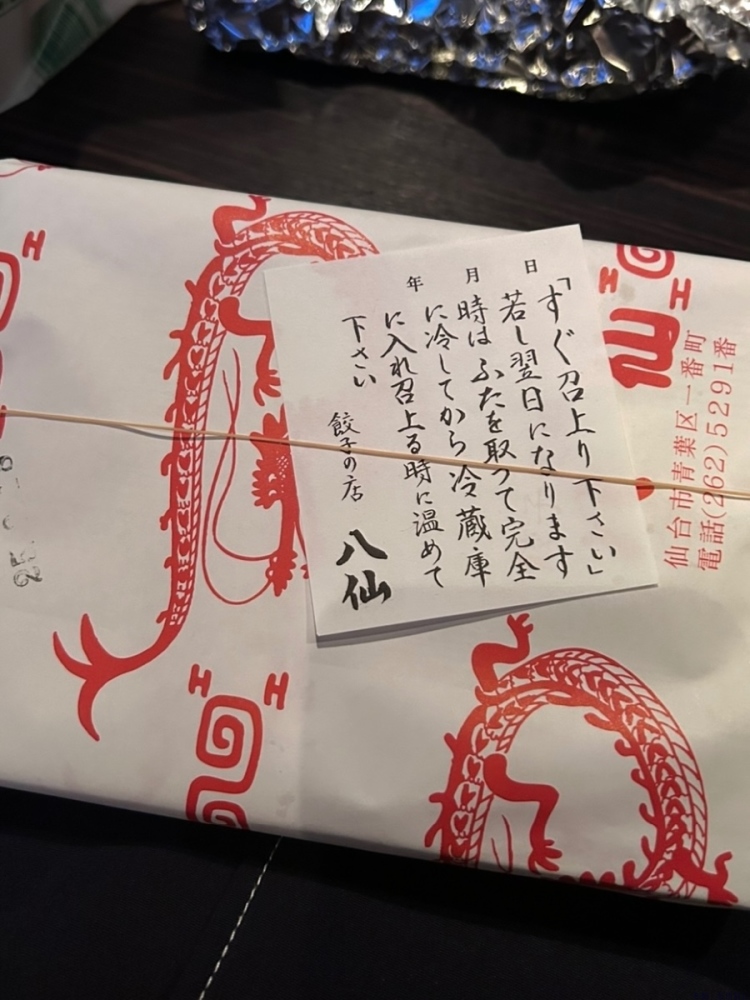 年 月 日
「すぐ召上り下さい」
若し翌日になります
時はふたを取って完全
に冷してから冷蔵庫
に入れ召上る時に温めて
下さい
餃子の店 八仙
仙
仙台市青葉区一番町
電話(262)5291番